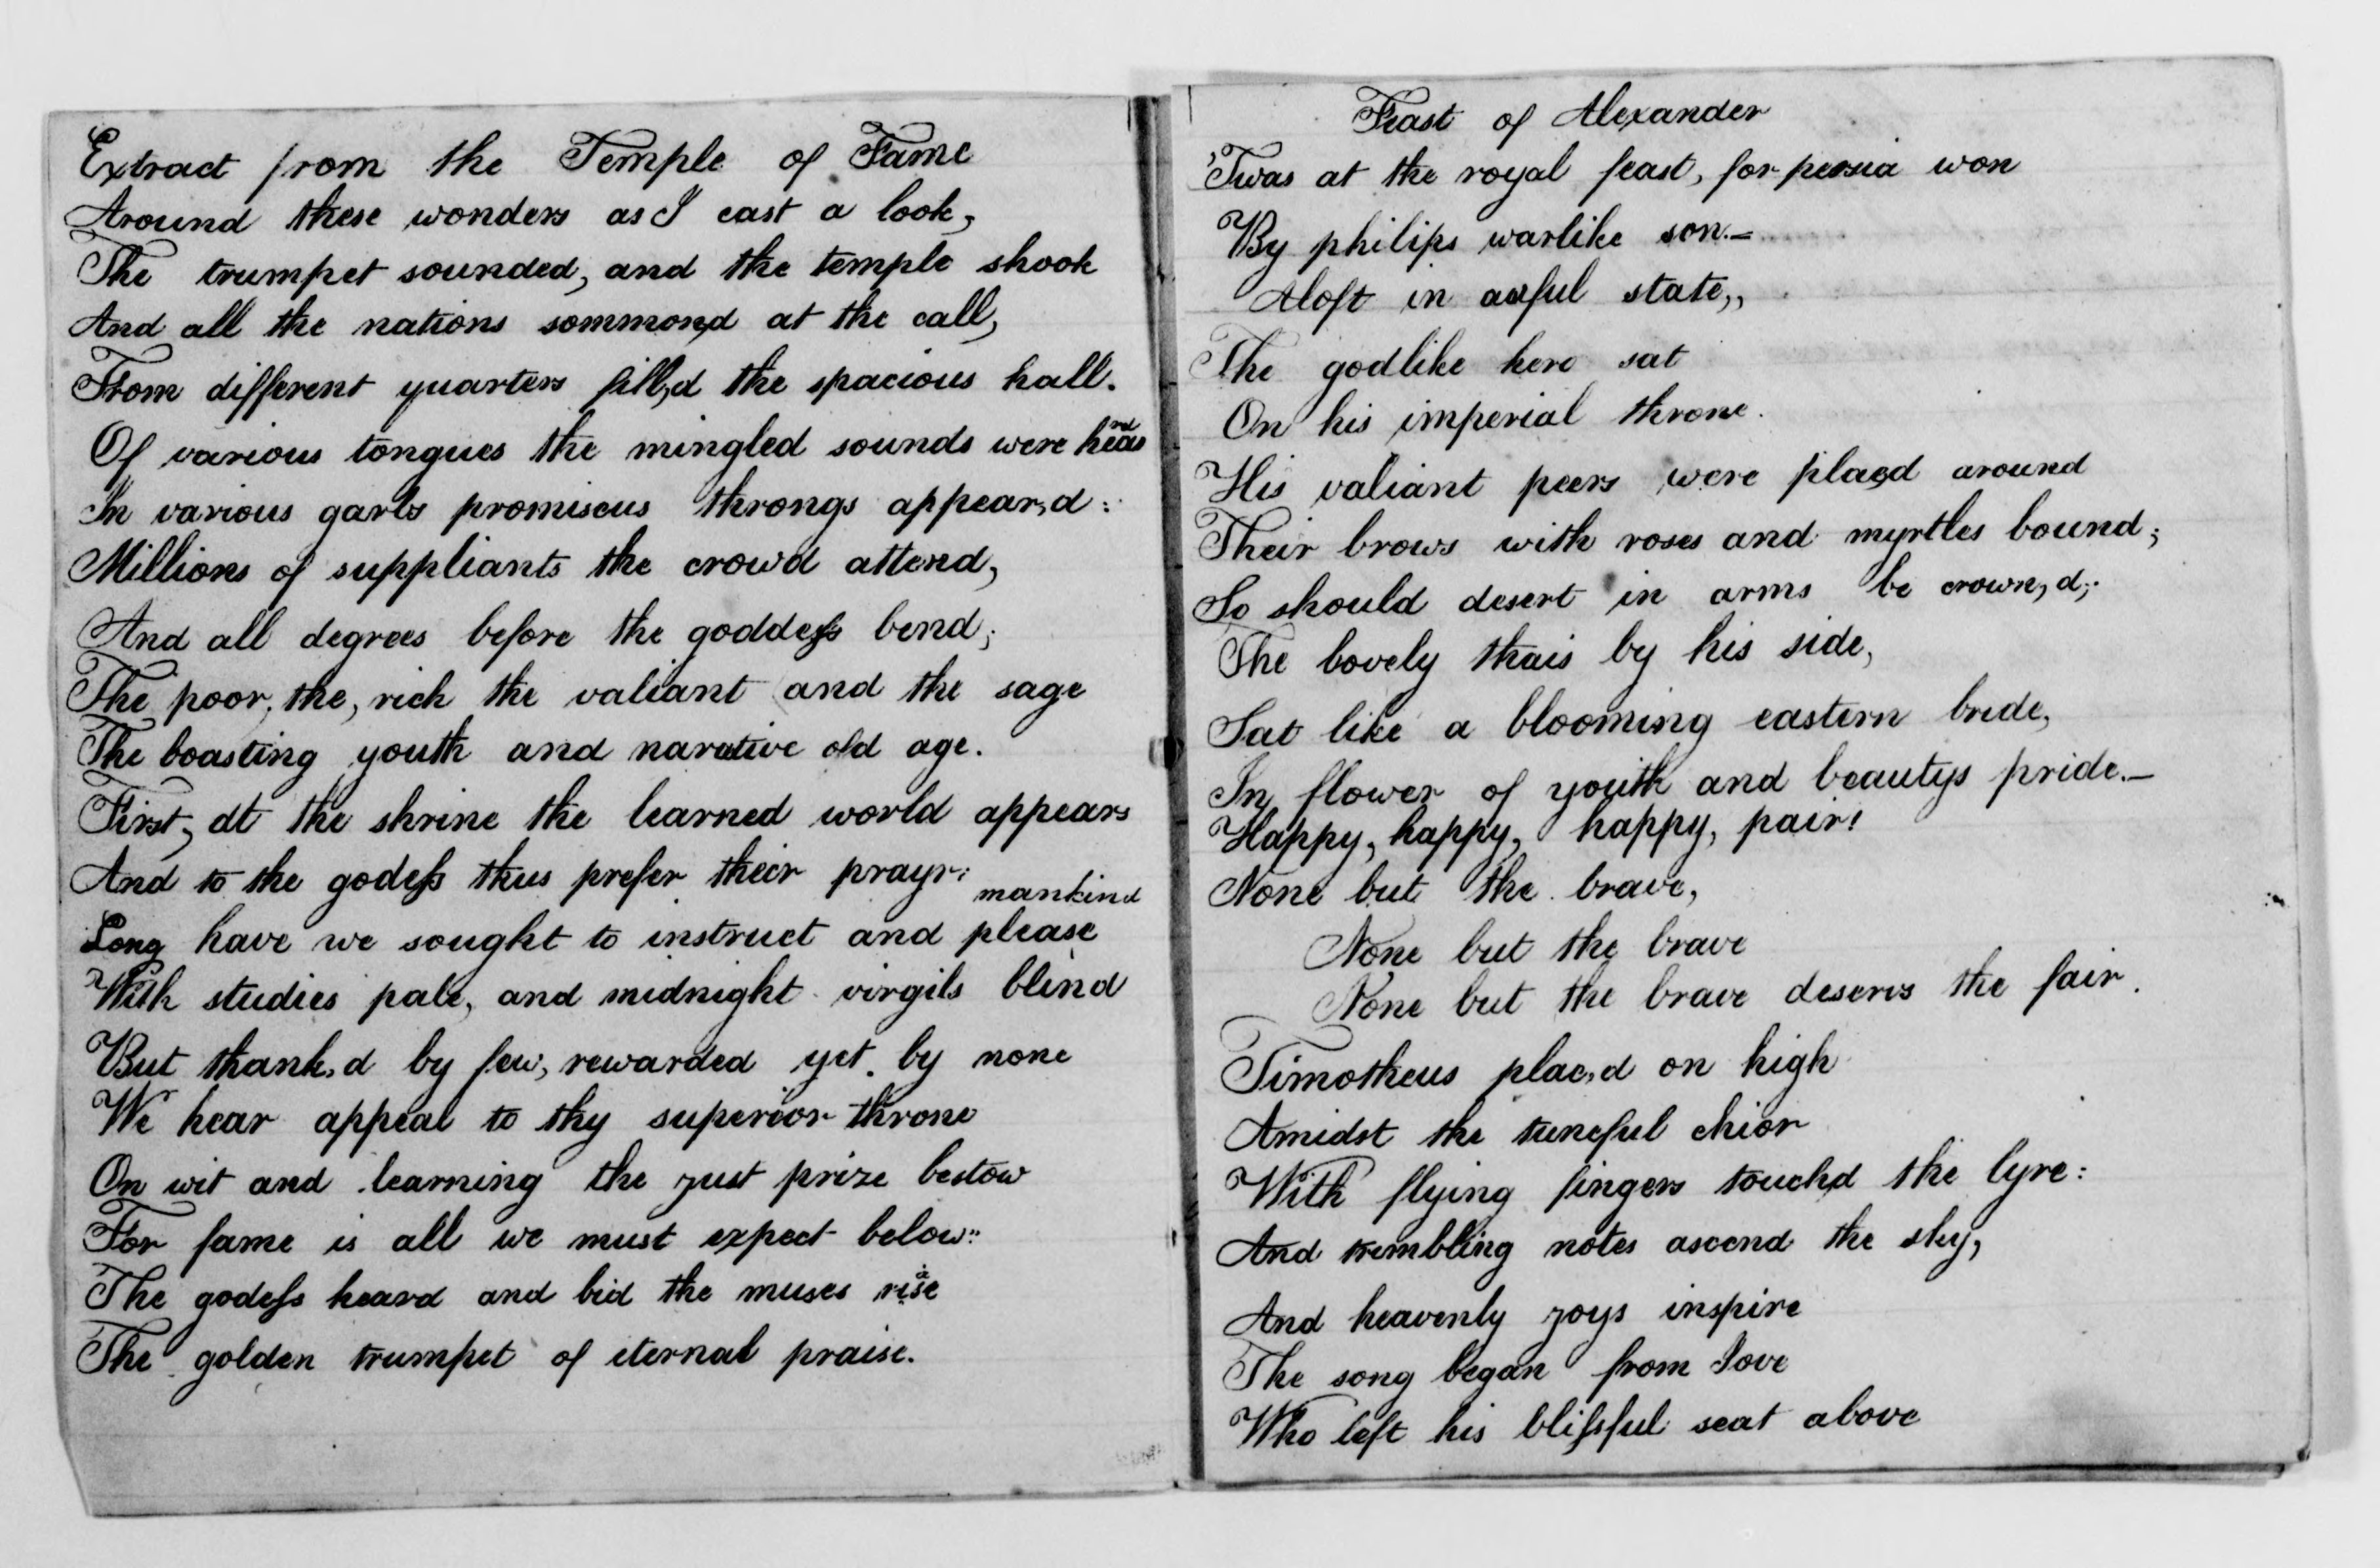 Extract from the Temple of Fame
Around these wonders as I cast a look,
The trumpet sounded, and the temple shook
And all the nations sommon,d at the call,
From different quarters fill,d the spacious hall.
Of various tongues the mingled sounds were heard
In various garbs promiscus throngs appear,d:
Millions of suppliants the crowd attend,
And all degrees before the goddess bend;
The poor, the, rich the valiant and the sage
The boasting youth and narative old age.
First, at the shrine the learned world appears
And to the godess thus prefer their prayr:
mankind
Long have we sought to instruct and please
With studies pale, and midnight virgils blind
But thank,d by few, rewarded yet by none
We hear appeal to thy superior throne
On wit and learning the just prize bestow
For fame is all we must expect below:
The godess heard and bid the muses raise
The golden trumpet of eternal praise.
Feast of Alexander
'Twas at the royal feast, for persia won
By philips warlike son.-
Aloft in awful state,,
The godlike hero sat
On his imperial throne.
His valiant peers were plac,d around
Their brows with roses and myrtles bound;
So should desert in arms be crown,d;
The lovely thais by his side,
Sat like a blooming eastern bride,
In flower of youth and beautys pride.-
Happy, happy, happy, pair!
None but the brave,
None but the brave
None but the brave deserves the fair.
Timotheus plac,d on high
Amidst the tuneful chior
With flying fingers touch,d the lyre:
And trembling notes ascend the sky,
And heavenly joys inspire
The song began from Jove
Who left his blissful seat above